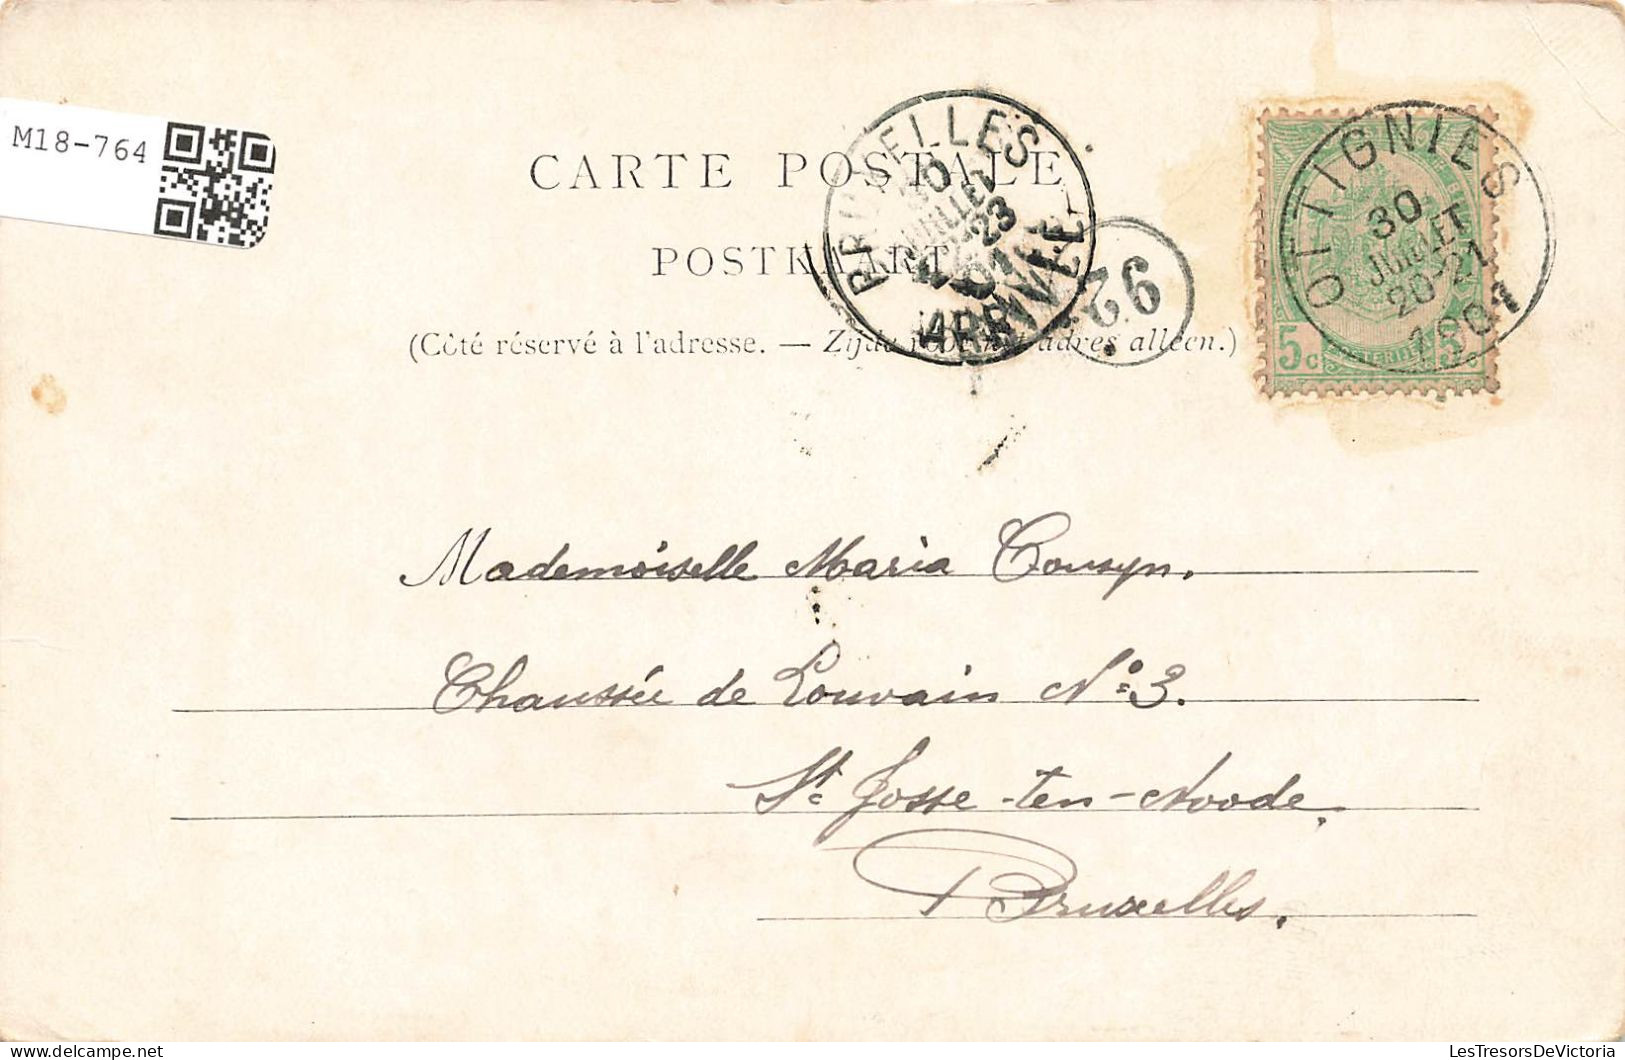 M18-764
CARTE POSTALE
POSTKAART
(Côté réservé à l'adresse. — Zijde voor het adres alleen.)
BRUXELLES
30
JUILLET
23
1901
ARRIVÉE
92
OTTIGNIES
30
JUILLET
20-21
1901
5c 5c
Mademoiselle Maria Cousyn,
Chaussée de Louvain N° 3.
St Josse-ten-Noode,
Bruxelles.
LesTresorsDeVictoria